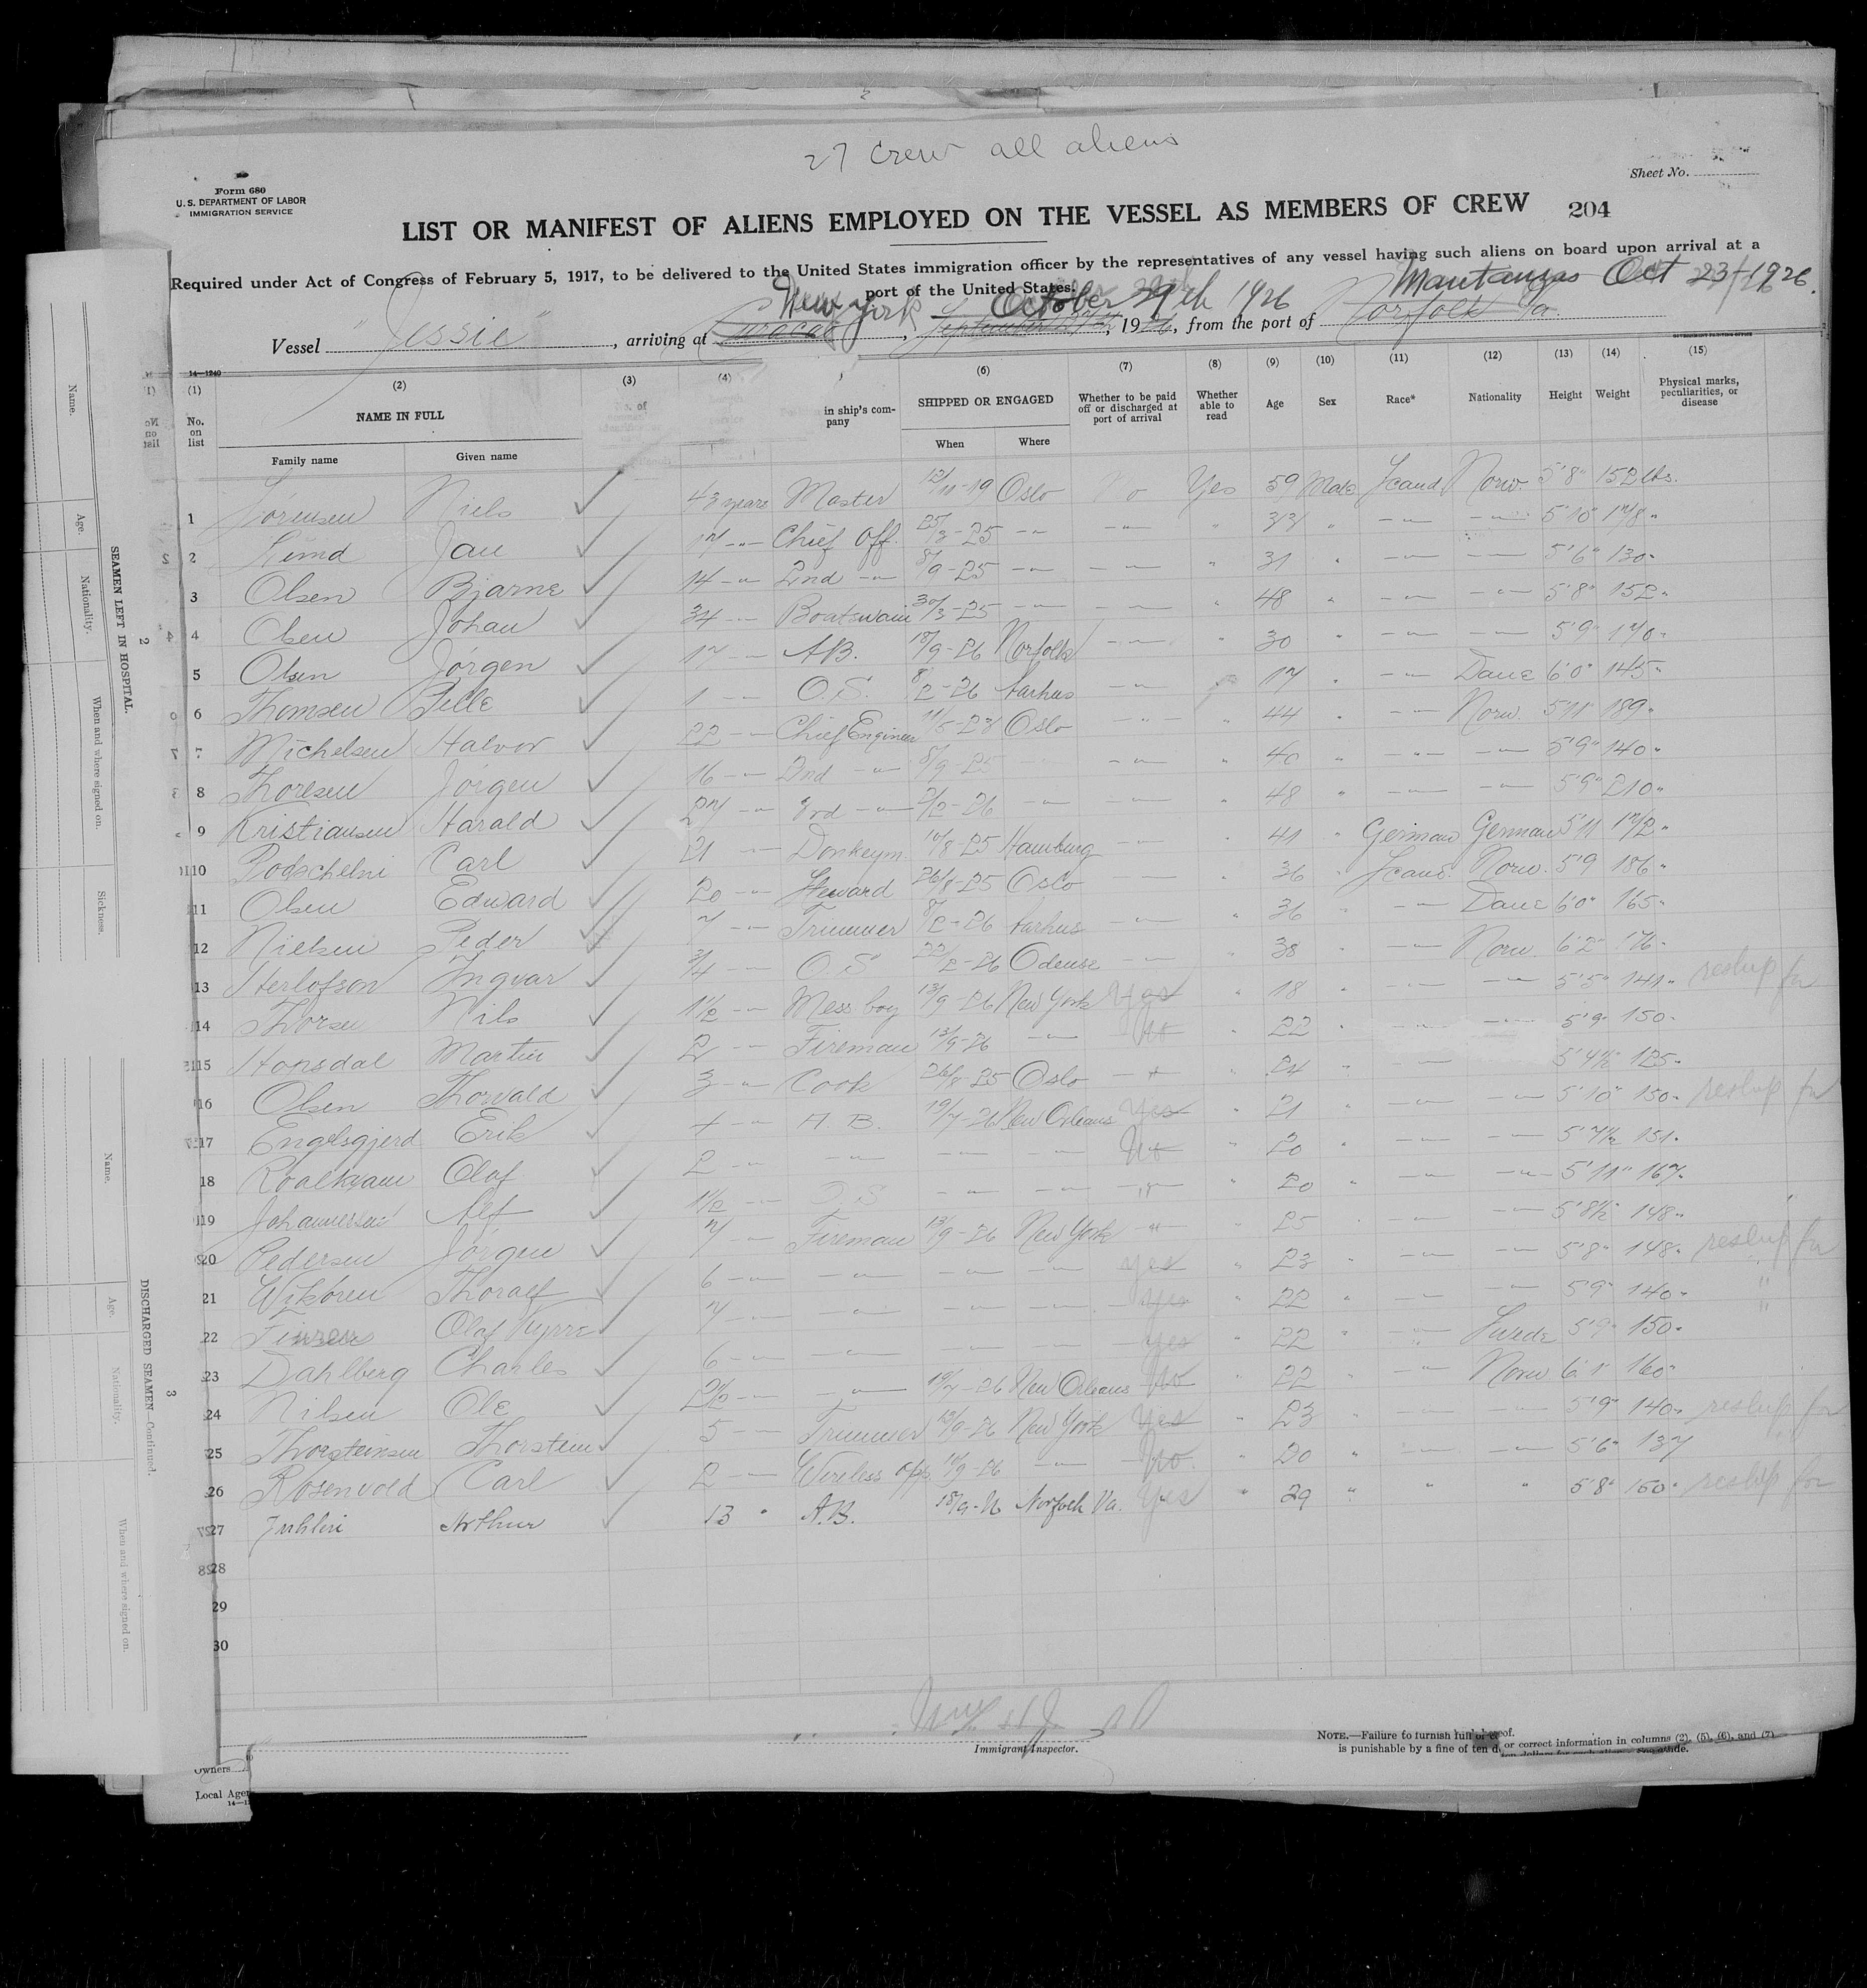 27 Crew all aliens
Form 680
U. S. DEPARTMENT OF LABOR
IMMIGRATION SERVICE
Sheet No.
LIST OR MANIFEST OF ALIENS EMPLOYED ON THE VESSEL AS MEMBERS OF CREW 204
Required under Act of Congress of February 5, 1917, to be delivered to the United States immigration officer by the representatives of any vessel having such aliens on board upon arrival at a
port of the United States.
New York October 29th 1926 Mantanzas Oct 23-1926.
Vessel "Jessie", arriving at Curacao, September 1926, from the port of Norfolk Va.
14—1240
(1) (2) (3) (4) (6) (7) (8) (9) (10) (11) (12) (13) (14) (15)
No. on list NAME IN FULL in ship's company SHIPPED OR ENGAGED Whether to be paid off or discharged at port of arrival Whether able to read Age Sex Race* Nationality Height Weight Physical marks, peculiarities, or disease
Family name Given name When Where
1 Sörensen Niels 43 years Master 12/11-19 Oslo No Yes 59 Male Scand Norw. 5'8" 152 lbs.
2 Jan 17 -"- Chief Off. 25/3-25 -"- -"- " 33 " -"- -"- 5'10" 178 "
3 Olsen Bjarne 14 -"- 2nd -"- 8/9-25 -"- -"- " 31 " -"- -"- 5'6" 130 "
4 Olsen Johan 34 -"- Boatswain 30/3-25 -"- -"- " 48 " -"- -"- 5'8" 152 "
5 Olsen Jörgen 17 -"- A.B. 18/9-26 Norfolk -"- " 30 " -"- -"- 5'9" 170 "
6 Thomsen Pelle 1 -"- O.S. 8/2-26 Aarhus -"- " 17 " -"- Dane 6'0" 145 "
7 Michelsen Halvor 22 -"- Chief Engineer 11/5-23 Oslo -"- " 44 " -"- Norw. 5'11" 189 "
8 Thoresen Jörgen 16 -"- 2nd -"- 8/9-25 -"- -"- " 40 " -"- -"- 5'9" 140 "
9 Kristiansen Harald 27 -"- 3rd -"- 2/2-26 -"- -"- " 48 " -"- -"- 5'9" 210 "
10 Carl 21 -"- Donkeym. 10/8-25 Hamburg -"- " 41 " German German 5'11 172 "
11 Olsen Edward 20 -"- Steward 26/8-25 Oslo -"- " 36 " Scand. Norw. 5'9 186 "
12 Nielsen Peder 7 -"- Trimmer 8/2-26 Aarhus -"- " 36 " -"- Dane 6'0" 165 "
13 Herlofson Ingvar 3/4 -"- O.S. 22/2-26 Odense -"- " 38 " -"- Norw. 6'2" 176 "
14 Thorsen Nils 1½ -"- Mess boy 13/9-26 New York Yes " 18 " -"- -"- 5'5" 141 " reship for
15 Honsdal Martin 2 -"- Fireman 13/9-26 -"- No " 22 " -"- -"- 5'9" 150 "
16 Olsen Thorvald 3 -"- Cook 26/8-25 Oslo -"- " 24 " -"- -"- 5'4½ 125 "
17 Engelsgjerd Erik -"- A.B. 19/7-26 New Orleans Yes " 21 " -"- -"- 5'10" 150 " reship for
18 Roalkvam Olaf 2 -"- -"- -"- -"- No " 20 " -"- -"- 5'7½ 151 "
19 Johannessen Alf 1½ -"- O.S. -"- -"- -"- " 20 " -"- -"- 5'11" 167 "
20 Pedersen Jörgen 7 -"- Fireman 13/9-26 New York -"- " 25 " -"- -"- 5'8½ 148 "
21 Wikören Thoralf 6 -"- -"- -"- -"- Yes " 23 " -"- -"- 5'8" 148 " reship for
22 Olaf Kyrre 7 -"- -"- -"- -"- Yes " 22 " -"- -"- 5'9" 140 " "
23 Dahlberg Charles 6 -"- -"- -"- -"- Yes " 22 " -"- Swede 5'9" 150 " "
24 Nilsen Ole 2½ -"- -"- 19/7-26 New Orleans No " 22 " -"- Norw 6'1" 160 "
25 Thorsteinsen Thorstein 5 -"- Trimmer 13/9-26 New York Yes " 23 " -"- -"- 5'9" 140 " reship for
26 Rosenvold Carl 2 -"- Wireless opr. 10/9-26 -"- No " 20 " -"- -"- 5'6" 137
27 Juhlin Arthur 13 " A.B. 18/9-26 Norfolk Va. Yes " 29 " " " 5'8" 150 " reship for
28
29
30
Immigrant Inspector.
NOTE.—Failure to furnish full or
is punishable by a fine of ten
or correct information in columns (2), (5), (6), and (7)
Owners
Local Agen
SEAMEN LEFT IN HOSPITAL.
Name. Age. Nationality. When and where signed on. Sickness.
2
DISCHARGED SEAMEN—Continued.
Name. Age. Nationality. When and where signed on.
3